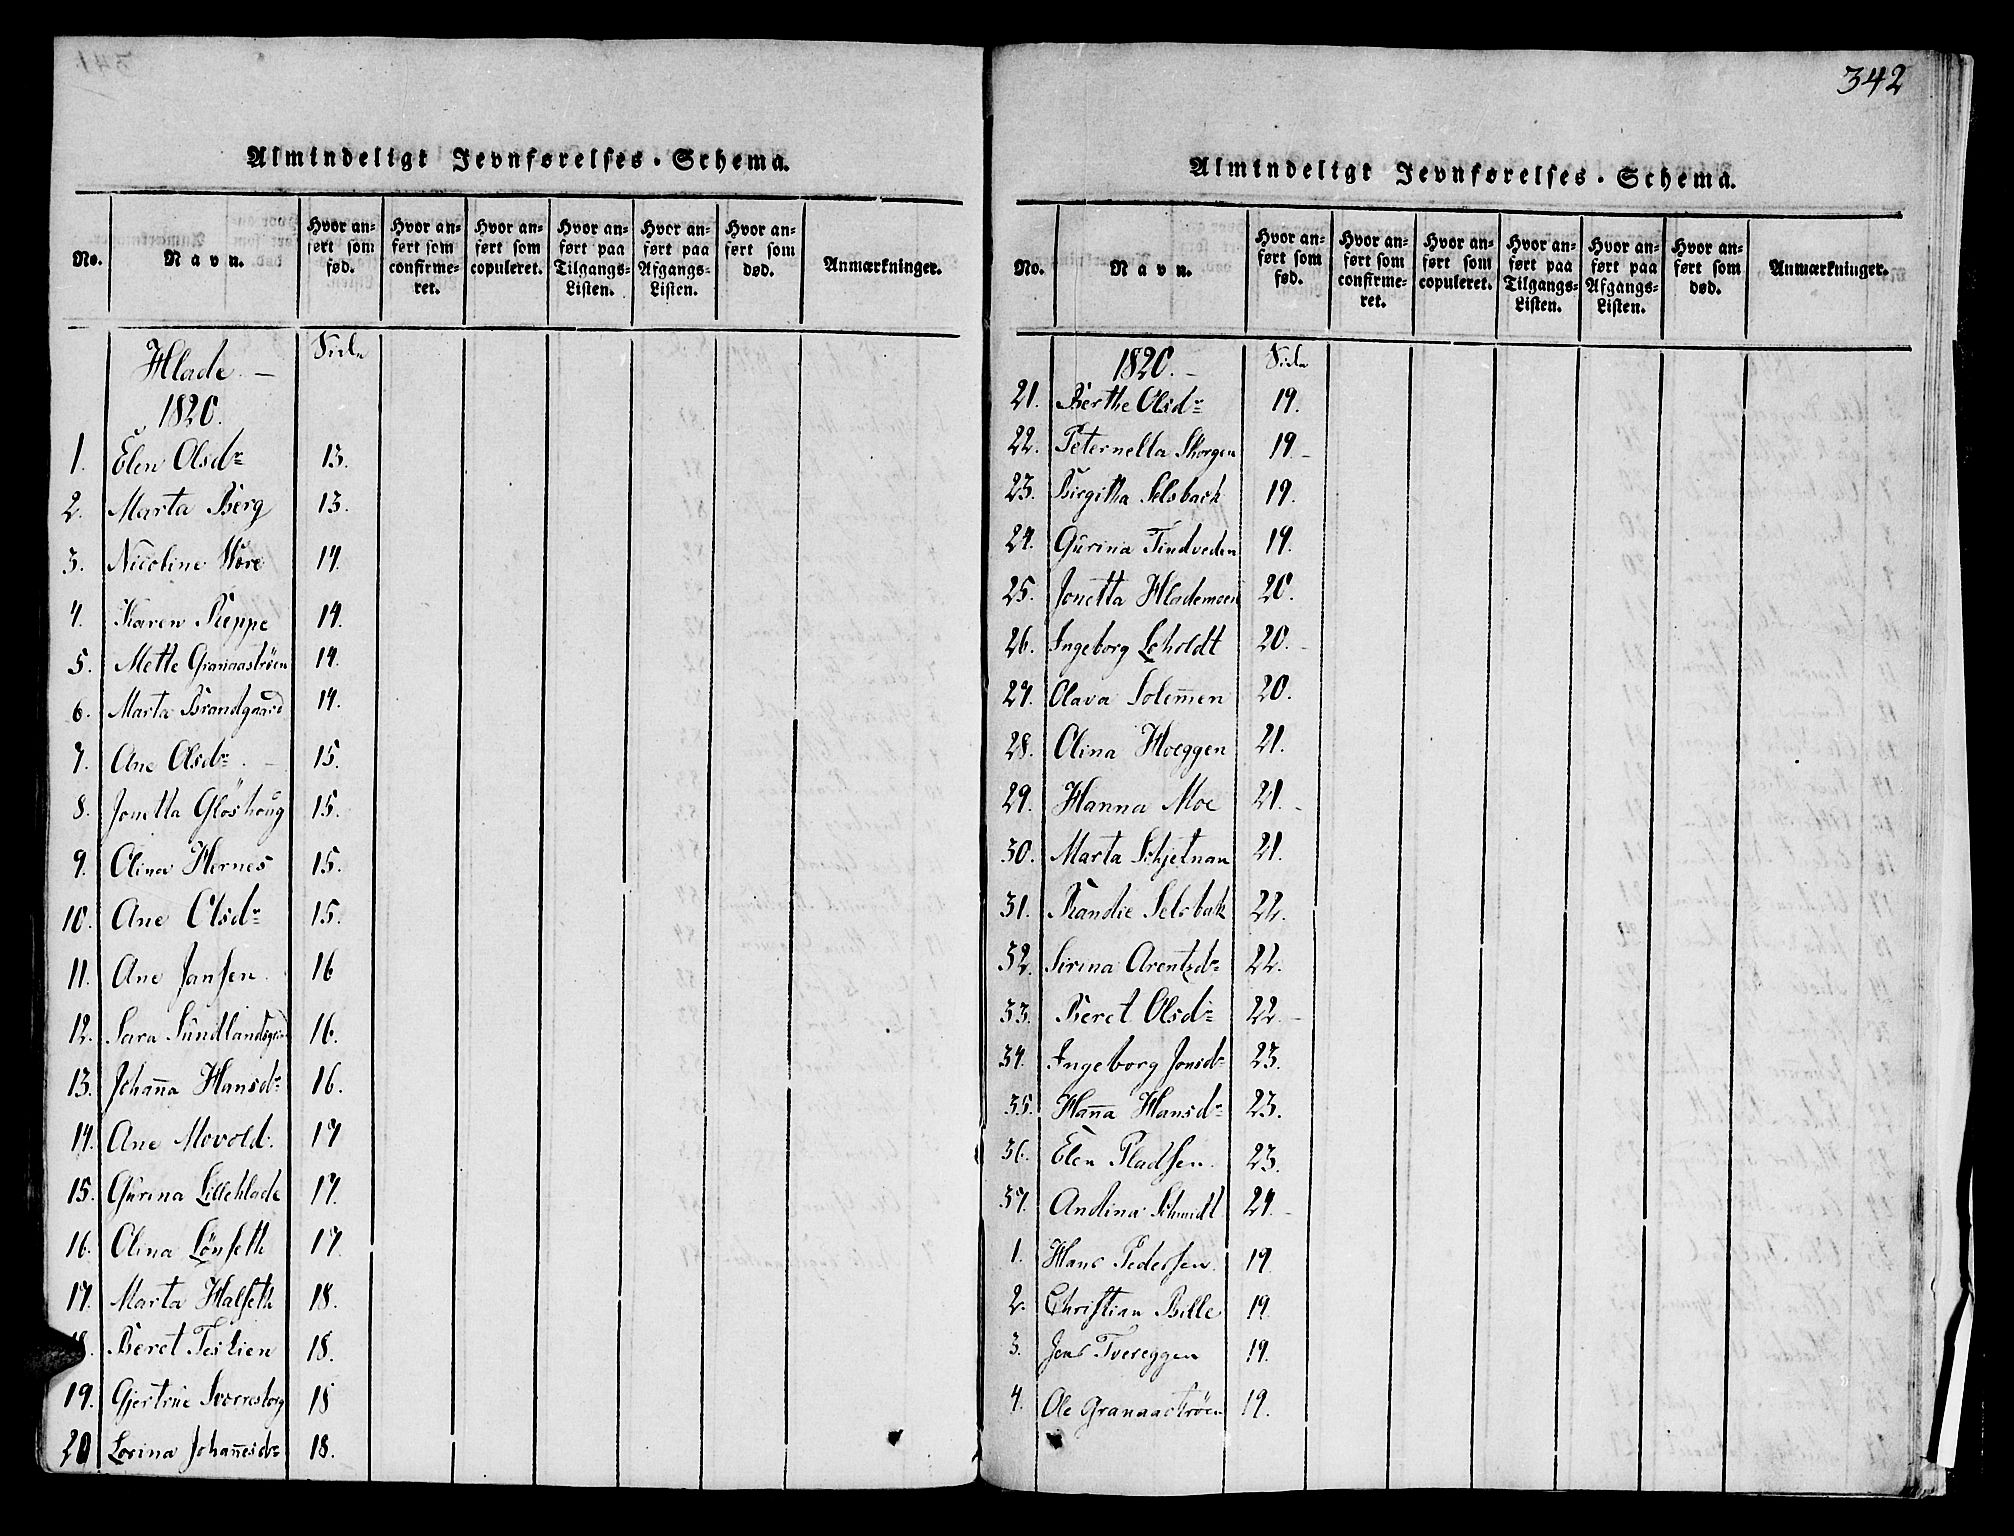 Almindeligt Jevnførelses-Schema.
No.
Navn.
Hvor anført som fød.
Hvor anført som confirmeret.
Hvor anført som copuleret.
Hvor anført paa Tilgangs-Listen.
Hvor anført paa Afgangs-Listen.
Hvor anført som død.
Anmærkninger.
Hlade. — Side
1820.
1. Elen Olsdr 13.
2. Marta Berg 13.
3. Nicoline 14.
4. Karen Reppe 14.
5. Mette Granaastrøen 14.
6. Marta Brandgaard 14.
7. Ane Olsdr. — 15.
8. Jonetta Gløshoug 15.
9. Olina Hernes 15.
10. Ane Olsdr 15.
11. Ane Jansen. 16
12. Sara 16.
13. Johan̄a Hansdr 16.
14. Ane Movold. 17
15. Gurina Lillehlade 17.
16. Olina Lønseth 17.
17. Marta Halseth 18.
Beret 18.
19. Gjertrue Sverresborg 18
20 Lorina Johan̄esdr 18.
342
Almindeligt Jevnførelses-Schema.
No.
Navn.
Hvor anført som fød.
Hvor anført som confirmeret.
Hvor anført som copuleret.
Hvor anført paa Tilgangs-Listen.
Hvor anført paa Afgangs-Listen.
Hvor anført som død.
Anmærkninger.
1820. — Side
21. Berthe Olsdr 19.
22. Peternella Skorgen 19.
23. Birgitta Selsback 19.
24. Gurina Tindveden 19.
25. Jonetta Hlademoen 20.
26. Ingeborg Leholdt 20.
27. Olava Solem̄en 20.
28. Olina Hoeggen 21.
29. Hanna Moe 21.
30. Marta Schjetnan 21.
31. Randie Selsbak 22.
32. Sirina Arentzdr 22.
33. Beret Olsdr 22.
34. Ingeborg Jonsdr 23.
35. Han̄a Hansdr 23.
36. Elen Pladsen. 23.
37. Andina Schmidt 24.
1. Hans Pedersen. 19.
2. Christian Bille 19.
3. Jens Tvereggen 19.
4. Ole Granaastrøen 19.